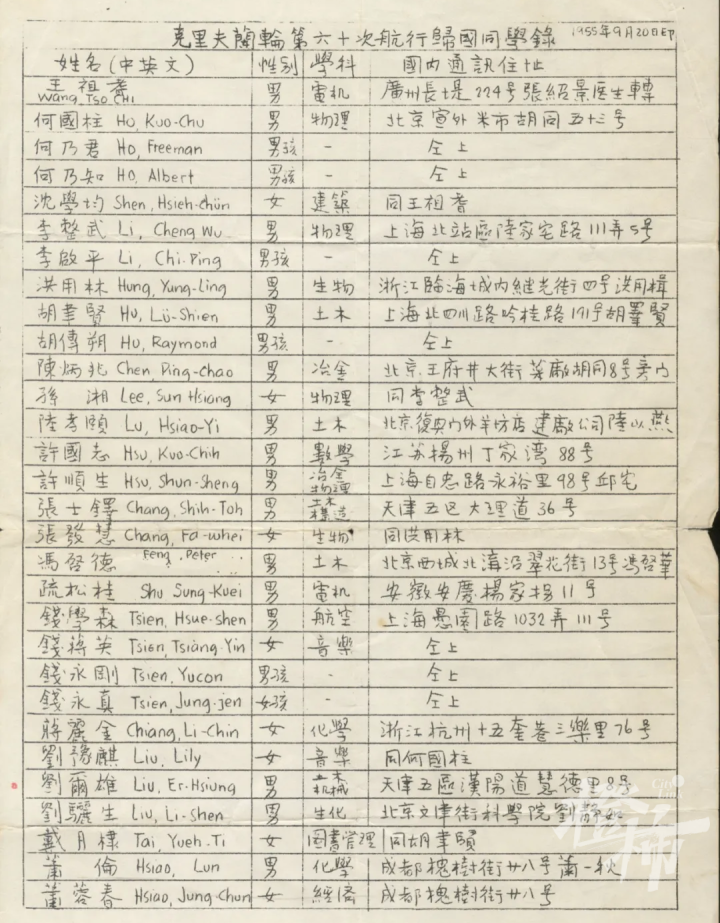 克里夫蘭輪第六十次航行歸國同學錄 1955年9月20日印
姓名(中英文) 性別 學科 國內通訊住址
王祖耆 Wang, Tso CHI 男 電机 廣州長堤224号張紹景医生轉
何國柱 Ho, Kuo-Chu 男 物理 北京宣外米市胡同五十三号
何乃君 Ho, Freeman 男孩 - 仝上
何乃知 Ho, Albert 男孩 - 仝上
沈學均 Shen, Hsieh-chün 女 建築 同王祖耆
李整武 Li, Cheng Wu 男 物理 上海北站區陸家宅路111弄5号
李啟平 Li, Chi-Ping 男孩 - 仝上
洪用林 Hung, Yung-Ling 男 生物 浙江臨海城內継光街四号洪用楫
胡聿賢 Hu, Lü-Shien 男 土木 上海北四川路吟桂路171号胡羣賢
胡傳朔 Hu, Raymond 男孩 - 仝上
陳炳兆 Chen, Ping-chao 男 冶金 北京王府井大街菜廠胡同8号旁门
孫湘 Lee, Sun Hsiang 女 物理 同李整武
陸孝頤 Lu, Hsiao-Yi 男 土木 北京復興门外羊坊店建廠公司陸以燕
許國志 Hsu, Kuo-Chih 男 數學 江苏揚州丁家湾88号
許順生 Hsu, Shun-Sheng 男 冶金物理 上海自忠路永裕里98号邱宅
張士鐸 Chang, Shih-Toh 男 土木構造 天津五区大理道36号
張發慧 Chang, Fa-whei 女 生物 同洪用林
馮啓德 Feng, Peter 男 土木 北京西城北溝沿翠花街13号馮啓華
疏松桂 Shu Sung-Kuei 男 電机 安徽安慶楊家拐11号
錢學森 Tsien, Hsue-shen 男 航空 上海愚園路1032弄111号
錢蔣英 Tsien, Tsiang-Yin 女 音樂 仝上
錢永剛 Tsien, Yucon 男孩 - 仝上
錢永真 Tsien, Jung-jen 女孩 - 仝上
蔣麗金 Chiang, Li-Chin 女 化學 浙江杭州十五奎巷三樂里76号
劉豫麒 Liu, Lily 女 音樂 同何國柱
劉爾雄 Liu, Er-Hsiung 男 土木机械 天津五區漢陽道慧德里8号
劉驪生 Liu, Li-Shen 男 生化 北京文津街科學院劉靜
戴月棣 Tai, Yueh-Ti 女 図書管理 同胡聿賢
蕭倫 Hsiao, Lun 男 化學 成都槐樹街廿八号蕭一秋
蕭蓉春 Hsiao, Jung-Chun 女 經済 成都槐樹街廿八号